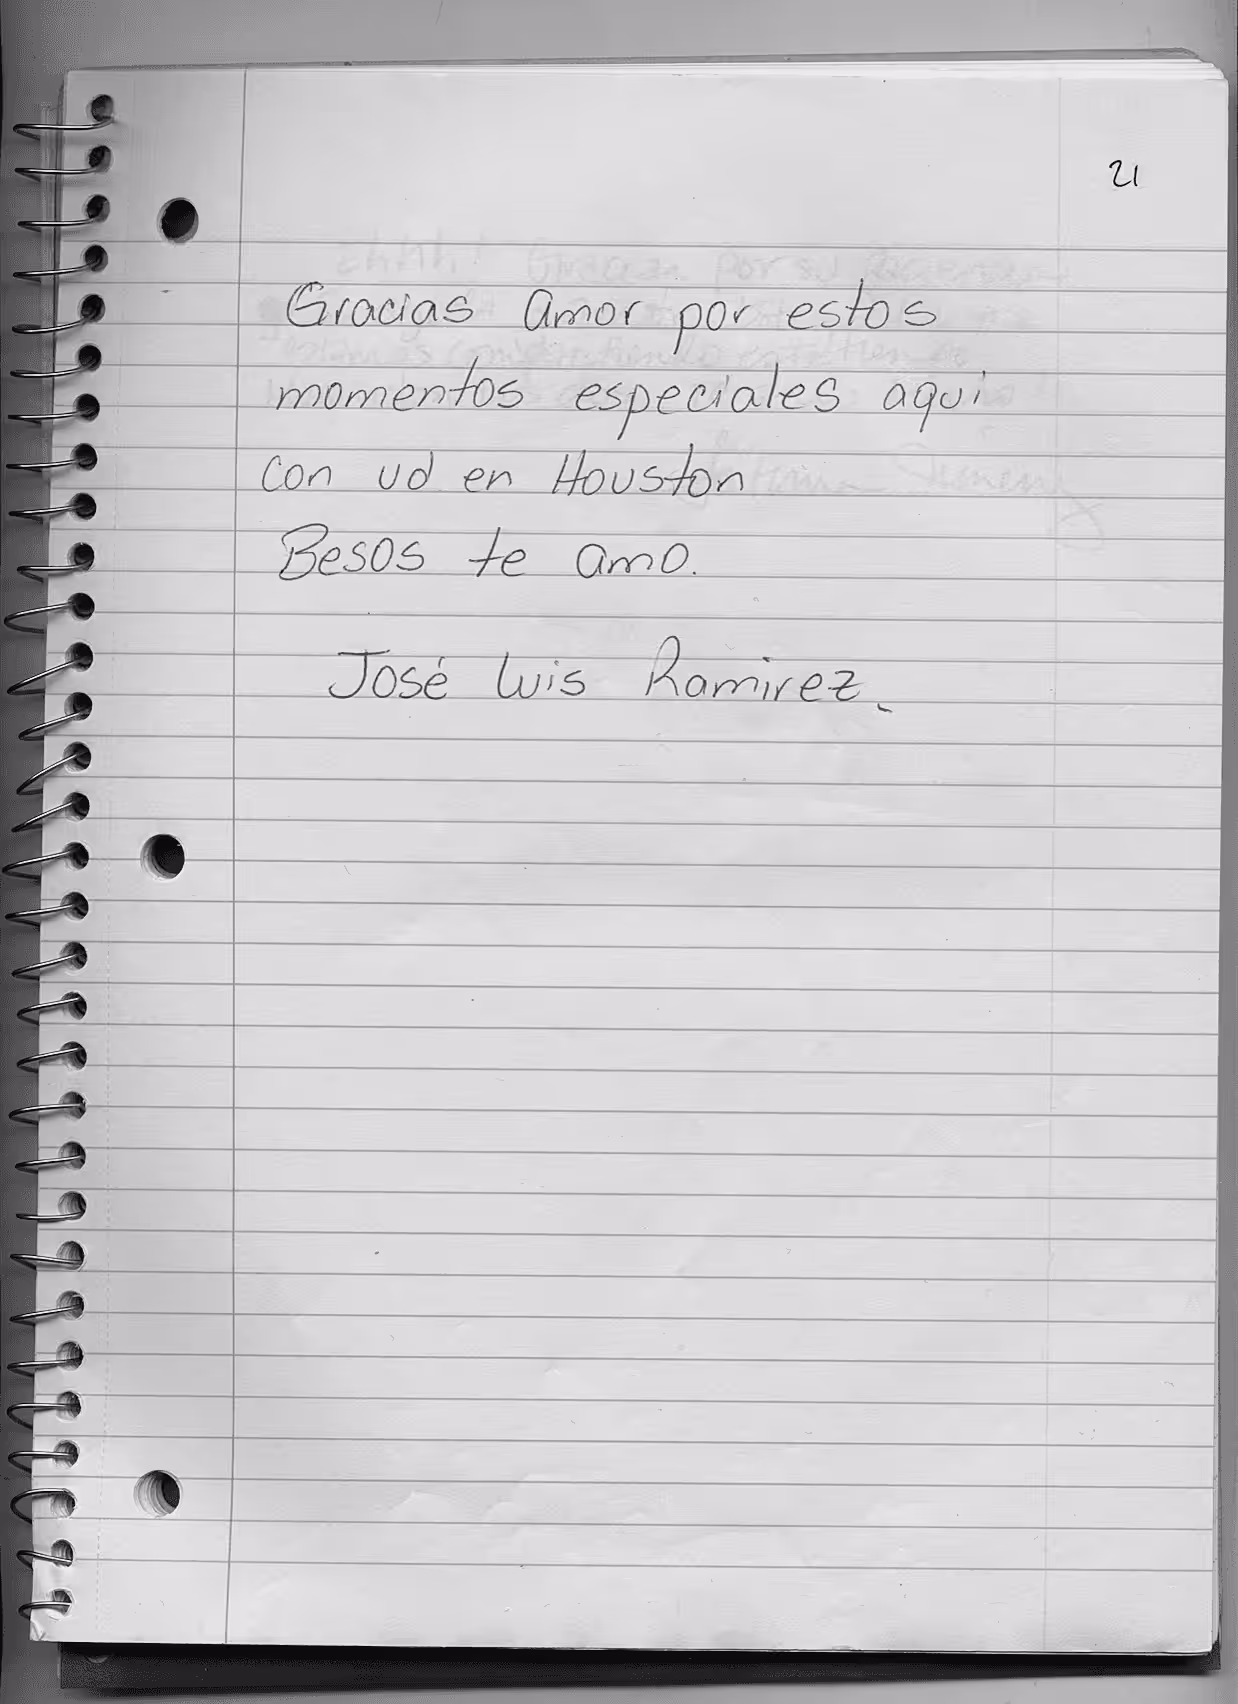 21
Gracias Amor por estos
momentos especiales aqui
con ud en Houston
Besos te amo.
José Luis Ramirez.